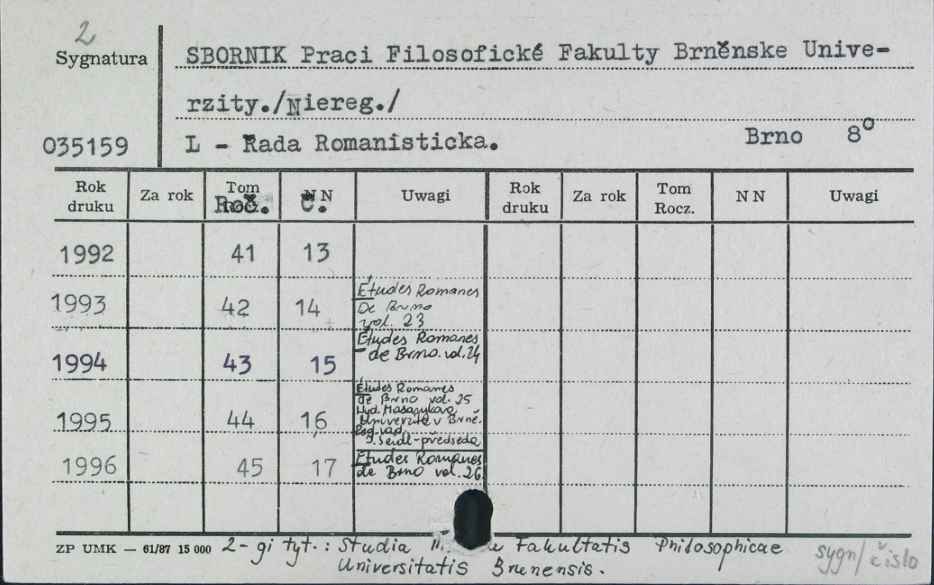 2
Sygnatura
SBORNIK Praci Filosofické Fakulty Brněnske Unive-
rzity./Niereg./
035159
L - Řada Romanisticka.
Brno 8°
Rok druku Za rok Tom Roč. NN č. Uwagi Rok druku Za rok Tom Rocz. NN Uwagi
1992 41 13
1993 42 14 Études Romanes
De Brno
vol. 23
1994 43 15 Études Romanes
de Brno. vol. 24
1995 44 16 Études Romanes
de Brno vol. 25
Masarykova
Univerzita v Brně.
Red. rad.
J. Seidl-předseda
1996 45 17 Études Romanes
de Brno vol. 26
ZP UMK — 61/87 15 000
2-gi tyt.: Studia Fakultatis Philosophicae
Universitatis Brunensis.
sygn/číslo